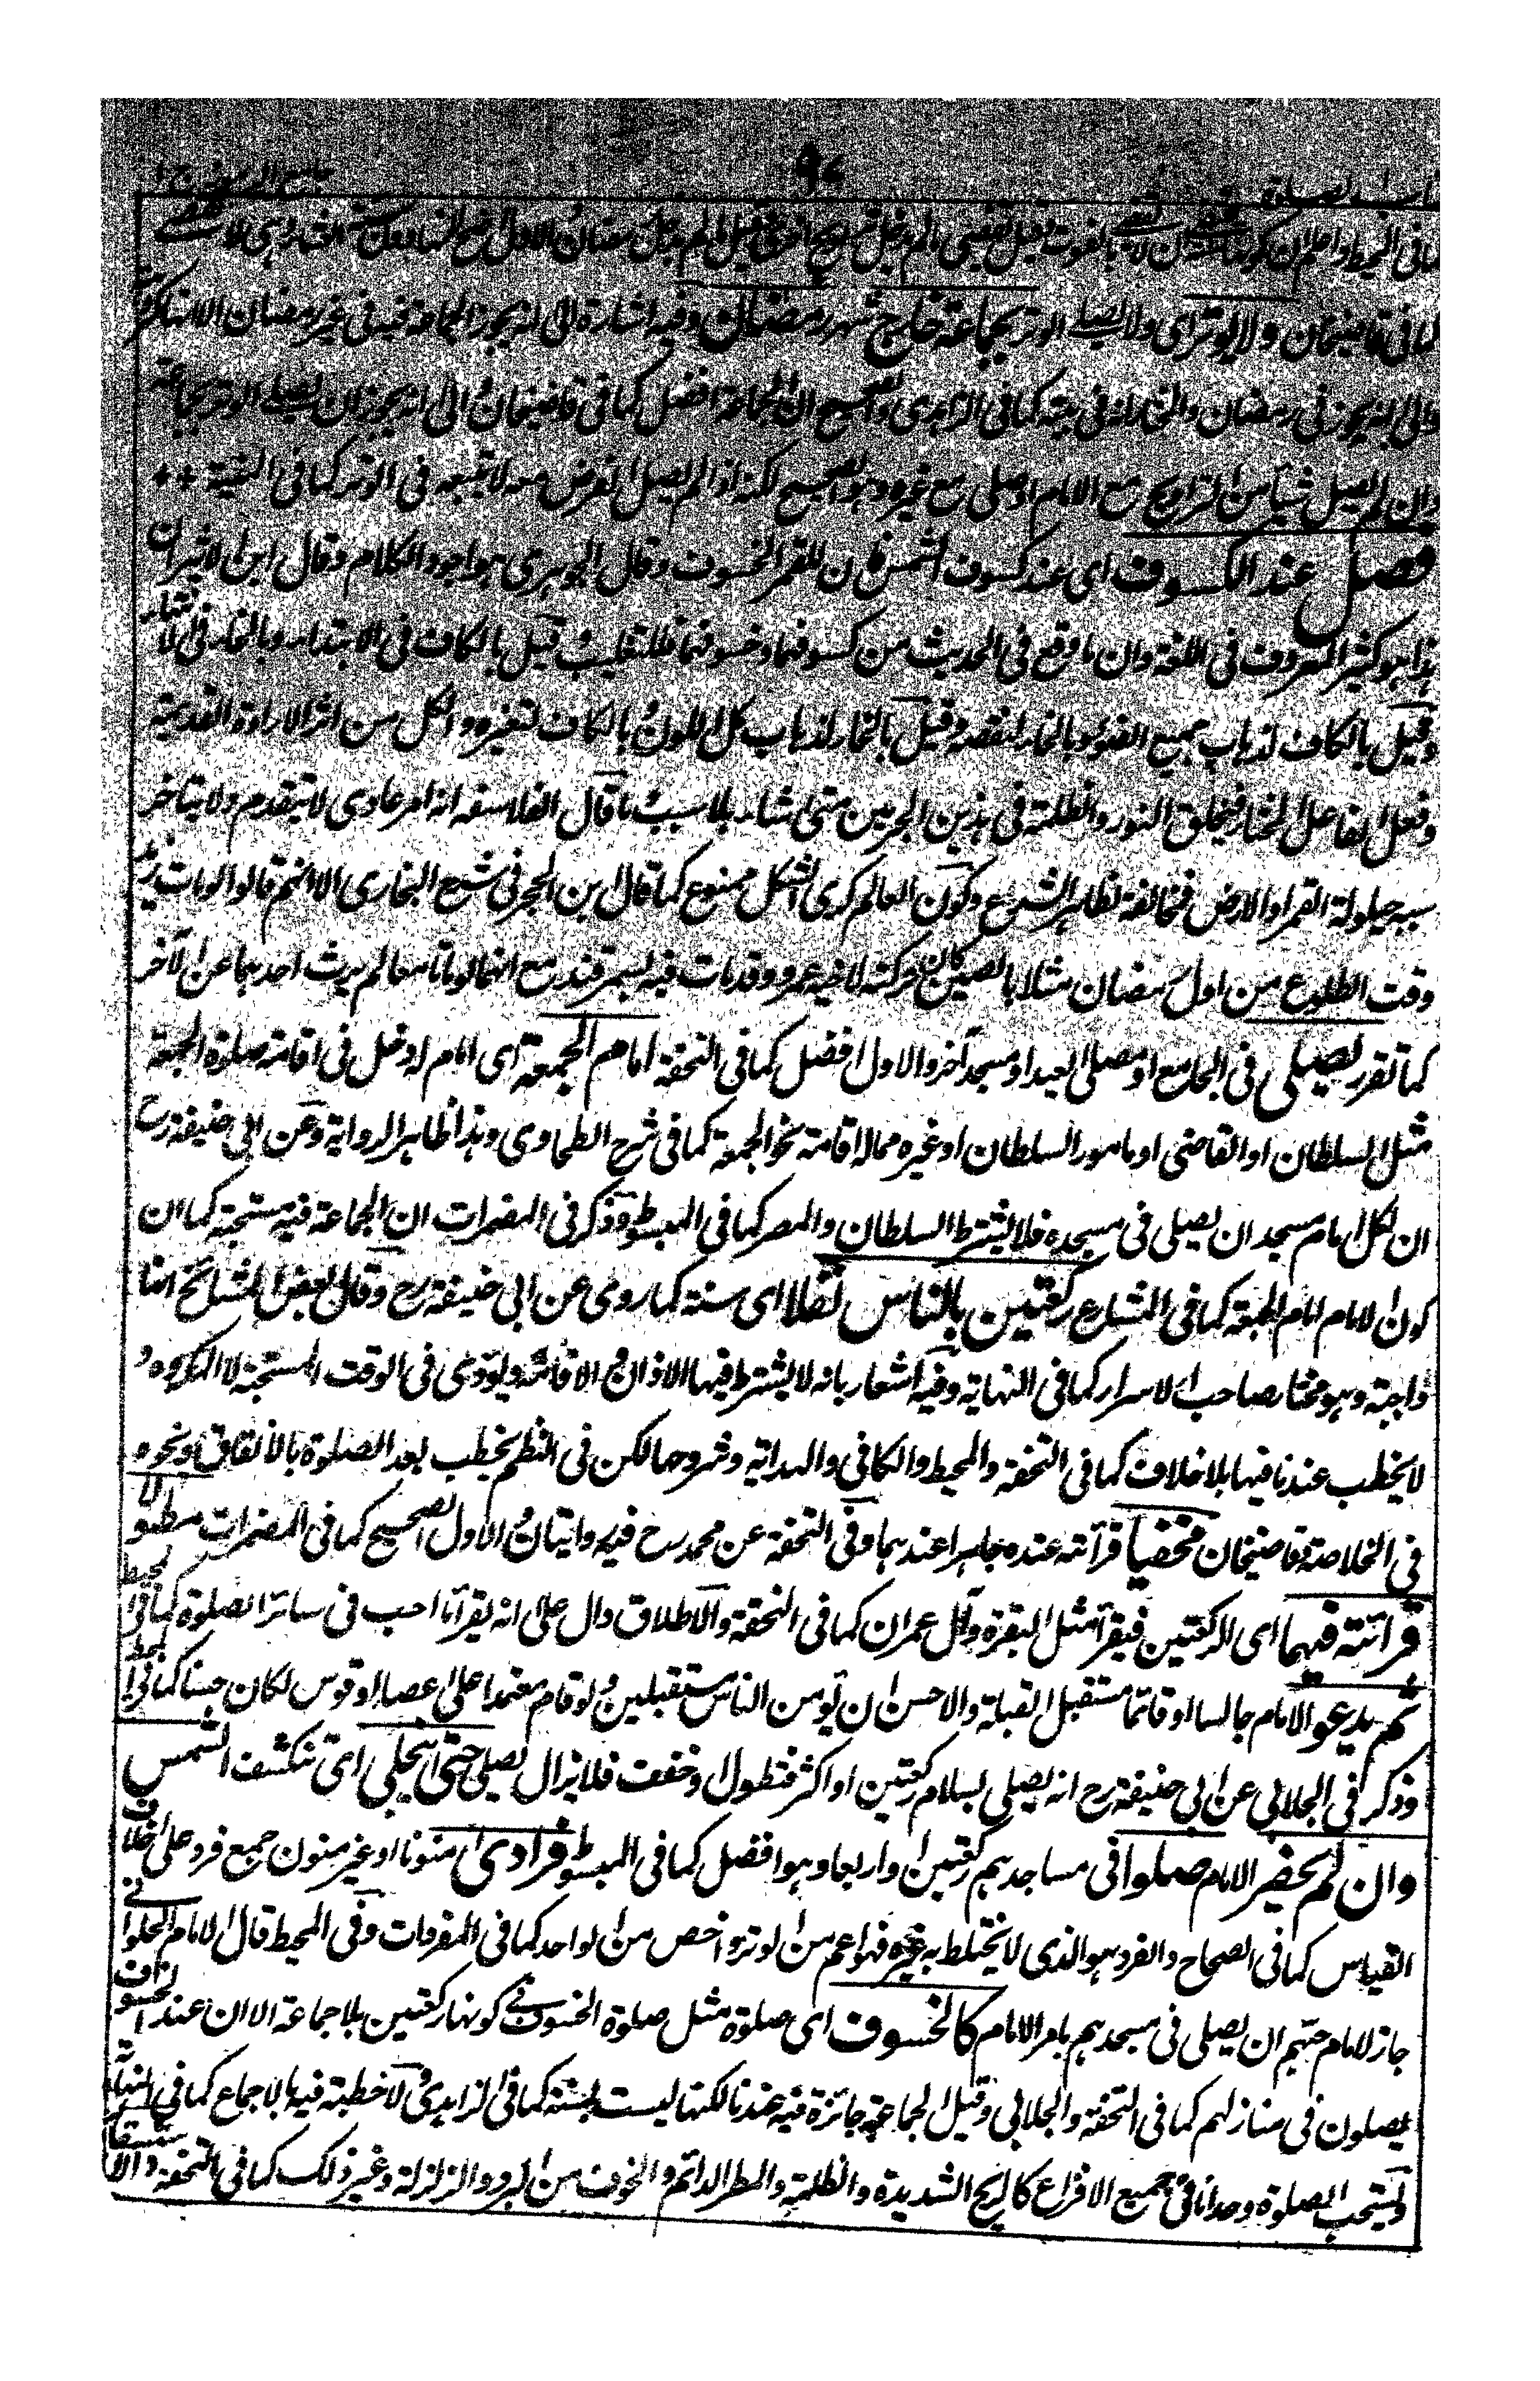 ٩٧
كما فى قاضيخان ولا يوتر اى ولا يصلى الوتر بجماعة خارج شهر رمضان وفيه اشارة الى انه يجوز الجماعة فيه فى غير رمضان الا انها تكره
والى انه يجوز فى رمضان والى انه فى بيته كما فى الزاهدى والصحيح ان الجماعة افضل كما فى قاضيخان والى انه يجوز ان يصلى الوتر بجماعة
وان لم يصل شيأ من التراويح مع الامام او صلى مع غيره وهو الصحيح لكنه اذا لم يصل الفرض معه لا يتبعه فى الوتر كما فى المنية
فصل عند الكسوف اى عند كسوف الشمس فان للقمر الخسوف وقال الجوهرى هو اجود الكلام وقال ابن الاثير ان
هذا هو كثير المعروف فى اللغة وان ما وقع فى الحديث من كسوفهما وخسوفهما فللتغليب وقيل بالكاف فى الابتداء وبالخاء فى الانتهاء
وقيل بالكاف لذهاب جميع الضوء وبالخاء لنقصه وقيل بالخاء لذهاب كل اللون وبالكاف لتغيره والكل من اثر الارادة القديمة
وفعل الفاعل المختار فيخلق النور والظلمة فى هذين الجرمين متى شاء بلا سبب وما قال الفلاسفه انه امر عادى لا يتقدم ولا يتاخر
سببه حيلولة القمر او الارض فمخالفة لظاهر الشرع وكون العالم كرى الشكل ممنوع كما قال ابن الحجر فى شرح البخارى الا انهم قالوا لو مات زيد
وقت الطلوع من اول رمضان مثلا بالصين كان تركته لاخيه عمرو وقد مات فيه بسمرقند مع انهما لو ماتا معا لم يرث احدهما عن الآخر
كما تقرر يصلى فى الجامع او مصلى العيد او مسجد آخر والاول افضل كما فى التحفة امام الجمعة اى امام له دخل فى اقامة صلوة الجمعة
مثل السلطان او القاضى او مامور السلطان او غيره مما له اقامة نحو الجمعة كما فى شرح الطحاوى وهذا ظاهر الرواية وعن ابى حنيفة رح
ان لكل امام مسجد ان يصلى فى مسجده فلا يشترط السلطان والمصر كما فى المبسوط وذكر فى المضمرات ان الجماعة فيه مستحبة كما ان
كون الامام امام الجمعة كما فى المشارع ركعتين بالناس نفلا اى سنة كما روى عن ابى حنيفة رح وقال بعض المشائخ انها
واجبة وهو مختار صاحب الاسرار كما فى النهاية وفيه اشعار بانه لا يشترط فيها الاذان والاقامة ويؤدى فى الوقت المستحبة لا المكروه و
لا يخطب عندنا فيها بلا خلاف كما فى التحفة والمحيط والكافى والهداية وشروحها لكن فى النظم يخطب بعد الصلوة بالاتفاق ونحوه
فى الخلاصة وقاضيخان مخفيا قرآئته عنده جاهرا عندهما وفى التحفة عن محمد رح فيه روايتان والاول الصحيح كما فى المضمرات مطولا
قرآئته فيهما اى الركعتين فيقرأ مثل البقرة وآل عمران كما فى التحفة والاطلاق دال على انه يقرأ ما احب فى سائر الصلوة كما فى المحيط
ثم يدعو الامام جالسا او قائما مستقبل القبلة والاحسن ان يؤمن الناس مستقبلين ولو قام معتمدا على عصا او قوس لكان حسنا كما فى المحيط
وذكر فى الجلابى عن ابى حنيفة رح انه يصلى بسلام ركعتين او اكثر فتطول او خفت فلا يزال يصلى حتى تنجلى اى تنكشف الشمس
وان لم يحضر الامام صلوا فى مساجدهم ركعتين او اربعا وهو افضل كما فى المبسوط فرادى منونا او غير منون جمع فرد على خلاف
القياس كما فى الصحاح والفرد هو الذى لا يختلط به غيره فهو اعم من الوتر واخص من الواحد كما فى المفردات وفى المحيط قال الامام الحلوانى
جاز لامام حيهم ان يصلى فى مسجدهم بامر الامام كالخسوف اى صلوة مثل صلوة الخسوف فى كونها ركعتين بلا جماعة الا ان عند الخسوف
يصلون فى منازلهم كما فى التحفة والجلابى وقيل الجماعة جائزة فيه عندنا لكنها ليست بسنة كما فى الزاهدى ولا خطبة فيه بالاجماع كما فى
ويستحب الصلوة وحدانا فى جميع الافزاع كالريح الشديدة والظلمة والمطر الدائم والخوف من البرد والزلزلة وغير ذلك كما فى التحفة والاستسقاء